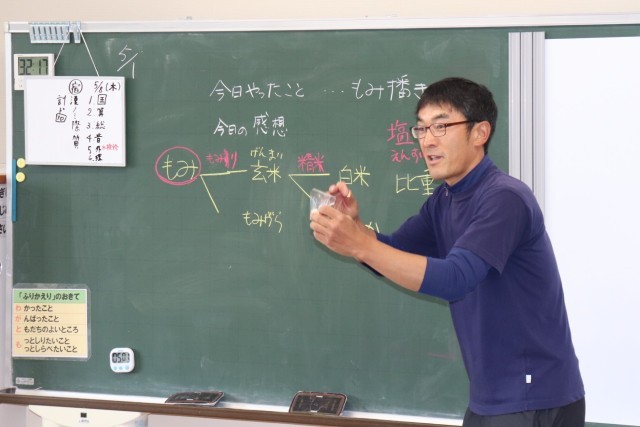 3217
5/1
今日やったこと…もみ播き
今日の感想
もみ
もみすり
げんまい
玄米
精米
白米
もみがら
塩
えんすい
比重
5/2(木)
1.国
2.算
3.総
4.音
計
漢
「ふりかえり」のおきて
わ かったこと
が んばったこと
と もだちのよいところ
も っとしりたいこと
っとしらべたいこと